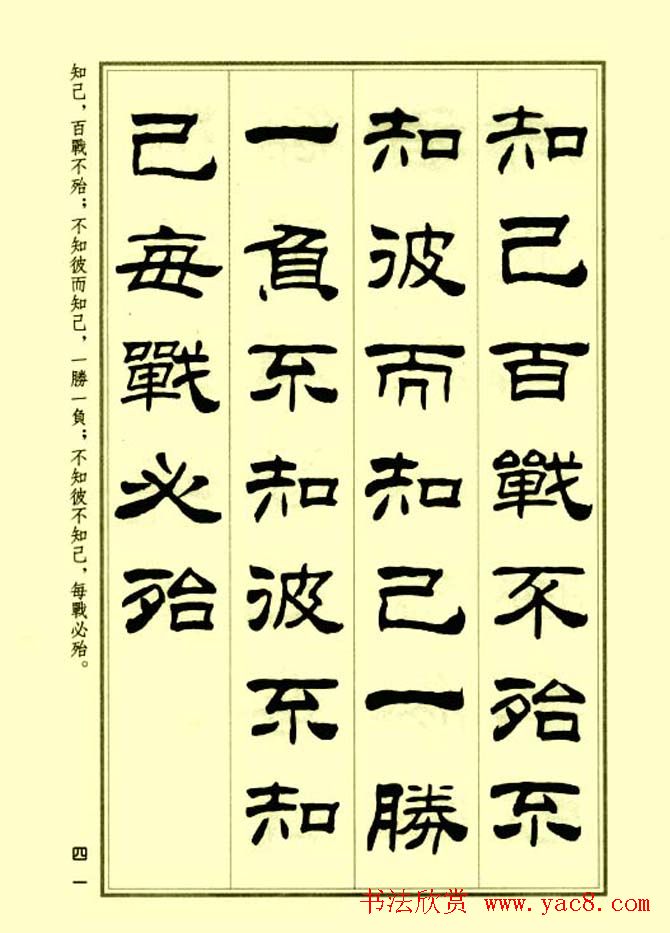 知己百戰不殆不
知彼而知己一勝
一負不知彼不知
己每戰必殆
知己，百戰不殆；不知彼而知己，一勝一負；不知彼不知己，每戰必殆。
四一
书法欣赏 www.yac8.com